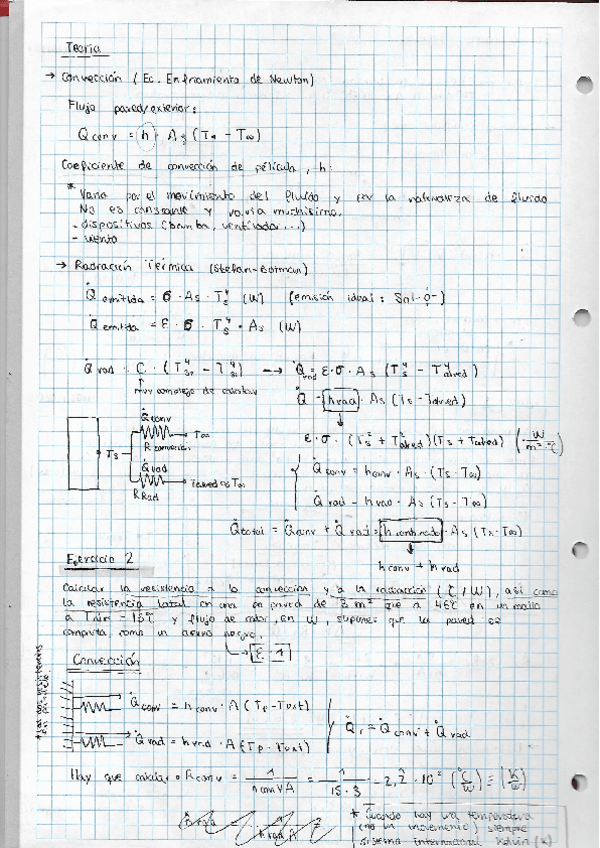 Teoría
→ Convección (Ec. Enfriamiento de Newton)
Flujo pared/exterior:
Q̇conv = h · As (Ts - T∞)
Coeficiente de convección de película, h:
* Varía por el movimiento del fluido y por la naturaleza de fluido
No es constante y varía muchísimo.
- dispositivos (bomba, ventilador...)
- viento
→ Radiación Térmica (Stefan-
Q̇emitida = σ · As · Ts⁴ (W) (emisión ideal:
Q̇emitida = ε · σ · Ts⁴ · As (W)
Q̇rad = C · ( → Q̇rad = ε · σ · As (Ts⁴ - T⁴alred)
muy complejo de calcular
Q̇ = hrad · As (Ts - Talred)
ε · σ · (Ts² + T²alred)(Ts + Talred) (W/m²·ºC)
Q̇conv
Ts T∞
R convección
Q̇rad
Talred ≈ T∞
R Rad
Q̇conv = hconv · As · (Ts - T∞)
Q̇rad = hrad · As (Ts - T∞)
Q̇total = Q̇conv + Q̇rad = hcombinado · As (Ts - T∞)
hconv + hrad
Ejercicio 2
Calcular la resistencia a la convección y a la radiación (ºC/W), así como
la resistencia total en una pared de 3 m² que a 46ºC en un medio
a = 15ºC y flujo de calor, en W, que la pared se
comporta como un cuerpo negro.
ε = 1
Convección
* Las dos resistencias en paralelo.
Q̇conv = hconv · A (Tp - Text)
Q̇rad = hrad · A (Tp - Text)
Q̇t = Q̇conv + Q̇rad
Hay que calcular Rconv = 1/hconv A = 1/15·3 = 2,2 · 10⁻² (ºC/W) = (K/W)
* Cuando hay una temperatura
(no la incremento) siempre
sistema internacional Kelvin (K)